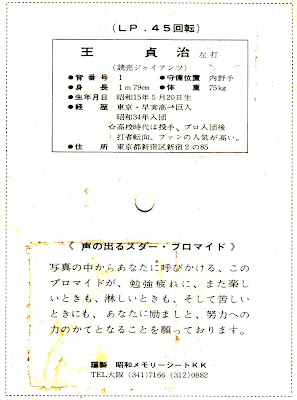 (LP.45回転)
王 貞治 左打
(読売ジャイアンツ)
●背番号 1 ●守備位置 内野手
●身長 1m79cm ●体重 75kg
●生年月日 昭和15年5月20日生
●経歴 東京・早実高→巨人
昭和34年入団
☆高校時代は投手、プロ入団後
打者転向、ファンの人気が高い。
●住所 東京都新宿区新宿2の85
《 声の出るスター・ブロマイド 》
写真の中からあなたに呼びかける、この
ブロマイドが、勉強疲れに、また楽し
いときも、淋しいときも、そして苦しい
ときにも、あなたに励ましと、努力への
力のかてとなることを願っております。
謹製 昭和メモリーシートKK
TEL大阪 (341)7166 (312)0882